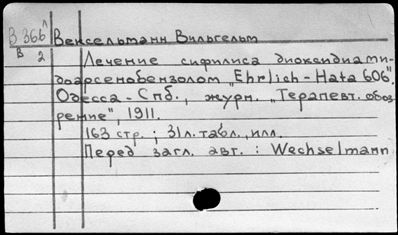 В 366^л Вексельманн Вильгельм
В 2
Лечение сифилиса диоксидиами-
доарсенобензолом "Ehrlich-Hata 606".
Одесса-Спб., журн. "Терапевт. обоз
рение", 1911.
163 стр.; 31 л. табл., илл.
Перед загл. авт.: Wechselmann